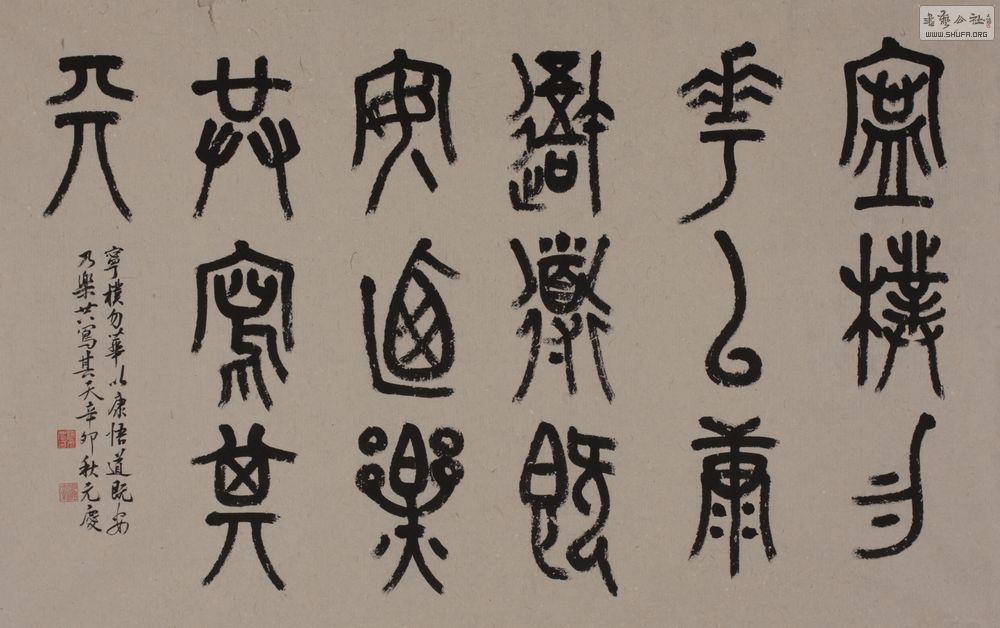 寧樸勿
華以康
悟道既
安迺樂
共寫其
天
寧樸勿華以康悟道既安
乃樂共寫其天辛卯秋元慶
书艺公社
WWW.SHUFA.ORG